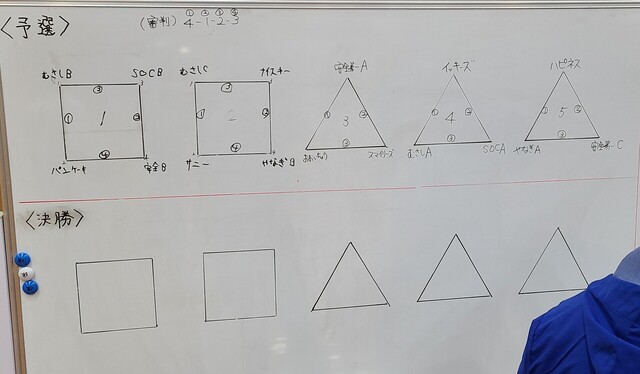 〈予選〉
(審判) ① ② ③ ④
4-1-2-3
むさしB SOCB
③
① 1 ②
④
パンケーキ 安全B
むさしC ナイスキー
③
① 2 ②
④
サニー やなぎB
安全第一A
① 3 ②
③
スマイリーズ
イッキーズ
① 4 ②
③
むさしA SOCA
ハピネス
① 5 ②
③
やなぎA 安全第一C
〈決勝〉